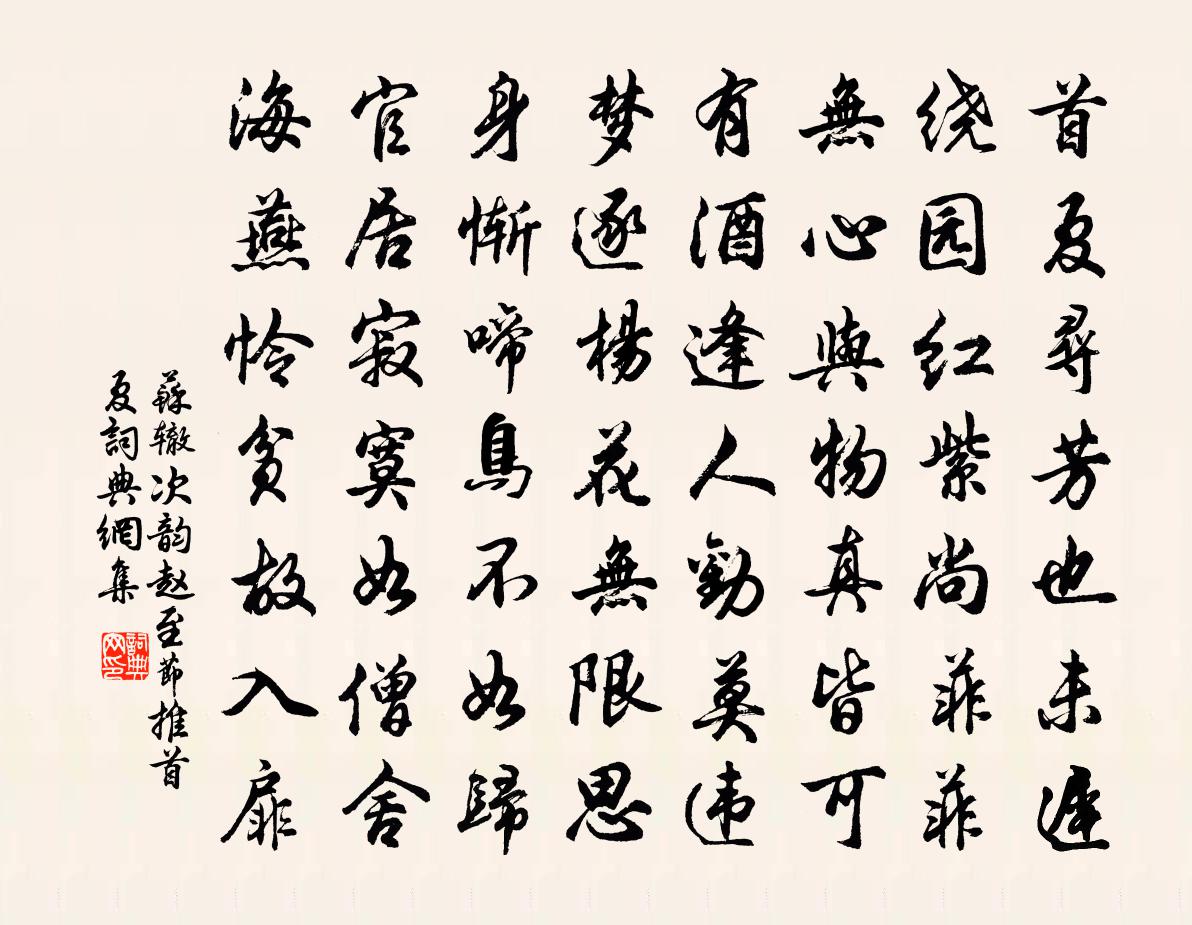 首夏尋芳也未遲
绕园红紫尚菲菲
無心與物真皆可
有酒逢人勸莫违
梦逐楊花無限思
身惭啼鳥不如歸
官居寂寞如僧舍
海燕怜贫故入扉
蘇辙次韵赵至節推首
夏詞典網集
詞典网印